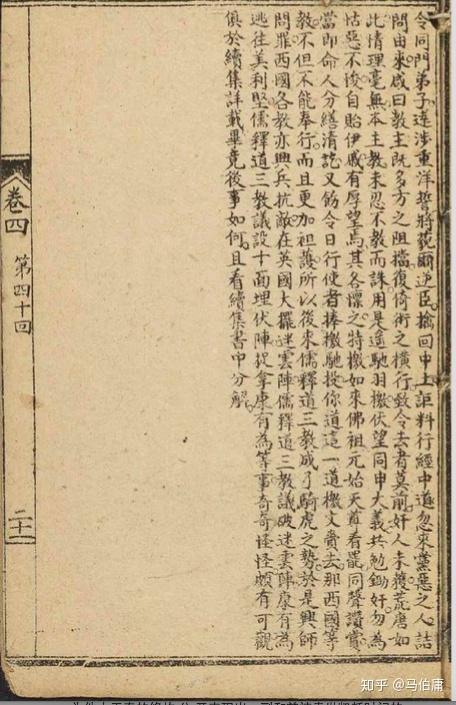 令同門弟子遠涉重洋誓將藐爾逆臣擒回中土詎料行經中道忽來黨惡之人詰
問由來咸曰教主旣多方之阻擋復倚術之橫行致令去者莫前奸人未獲荒唐如
此情理毫無本主教未忍不教而誅用是遙馳羽檄伏望同申大義共勉鋤奸勿爲
怙惡不悛自貽伊戚有厚望焉其各懍之特檄如來佛祖元始天尊看罷同聲讚賞
當即命人分繕清訖又飭令日行使者捧檄馳投你道這一道檄文賫去那西國等
教不但不能奉行而且更加袒護所以後來儒釋道三教成了騎虎之勢於是興師
問罪西國各教亦興兵抗敵在英國大擺迷雲陣儒釋道三教議破迷雲陣康有為
逃往美利堅儒釋道三教議設十面埋伏陣捉拿康有為等事奇奇怪怪頗有可觀
俱於續集詳載畢竟後事如何且看續集書中分解
卷四
第四十回
二十一
知乎 @马伯庸